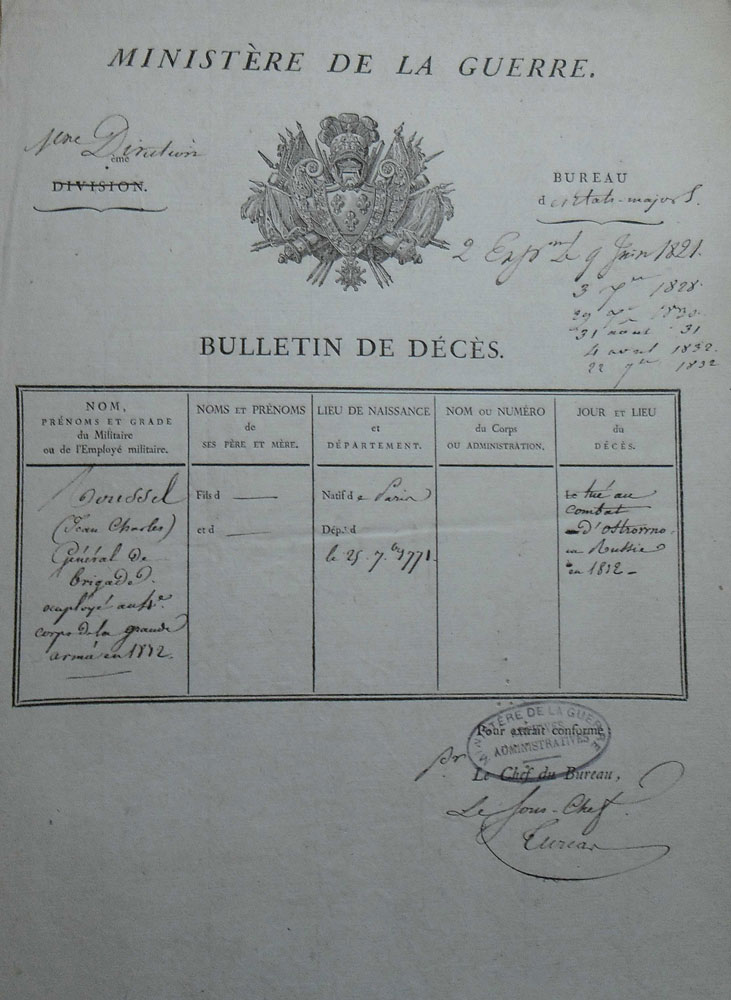 MINISTÈRE DE LA GUERRE.
1ere Direction
ème
DIVISION.
BUREAU
d es Etats-majors.
2 Exp.ons le 9 Juin 1821.
3 7bre 1828.
29 1830.
31 août 31
4 avril 1832.
22 7bre 1832
BULLETIN DE DÉCÈS.
NOM,
PRÉNOMS ET GRADE
du Militaire
ou de l'Employé militaire.
NOMS ET PRÉNOMS
de
SES PÈRE ET MÈRE.
LIEU DE NAISSANCE
et
DÉPARTEMENT.
NOM OU NUMÉRO
du Corps
OU ADMINISTRATION.
JOUR ET LIEU
du
DÉCÈS.
Roussel
(Jean Charles)
Général de
brigade.
employé au 4e.
corps de la grande
armée en 1812.
Fils d
et d
Natif d e Paris
Dép.t d
le 25 7.bre 1771.
Le tué au
combat
d'Ostrovno
en Russie
en 1812
Pour extrait conforme:
MINISTÈRE DE LA GUERRE
ARCHIVES
ADMINISTRATIVES
pr. Le Chef du Bureau,
Le Sous-Chef